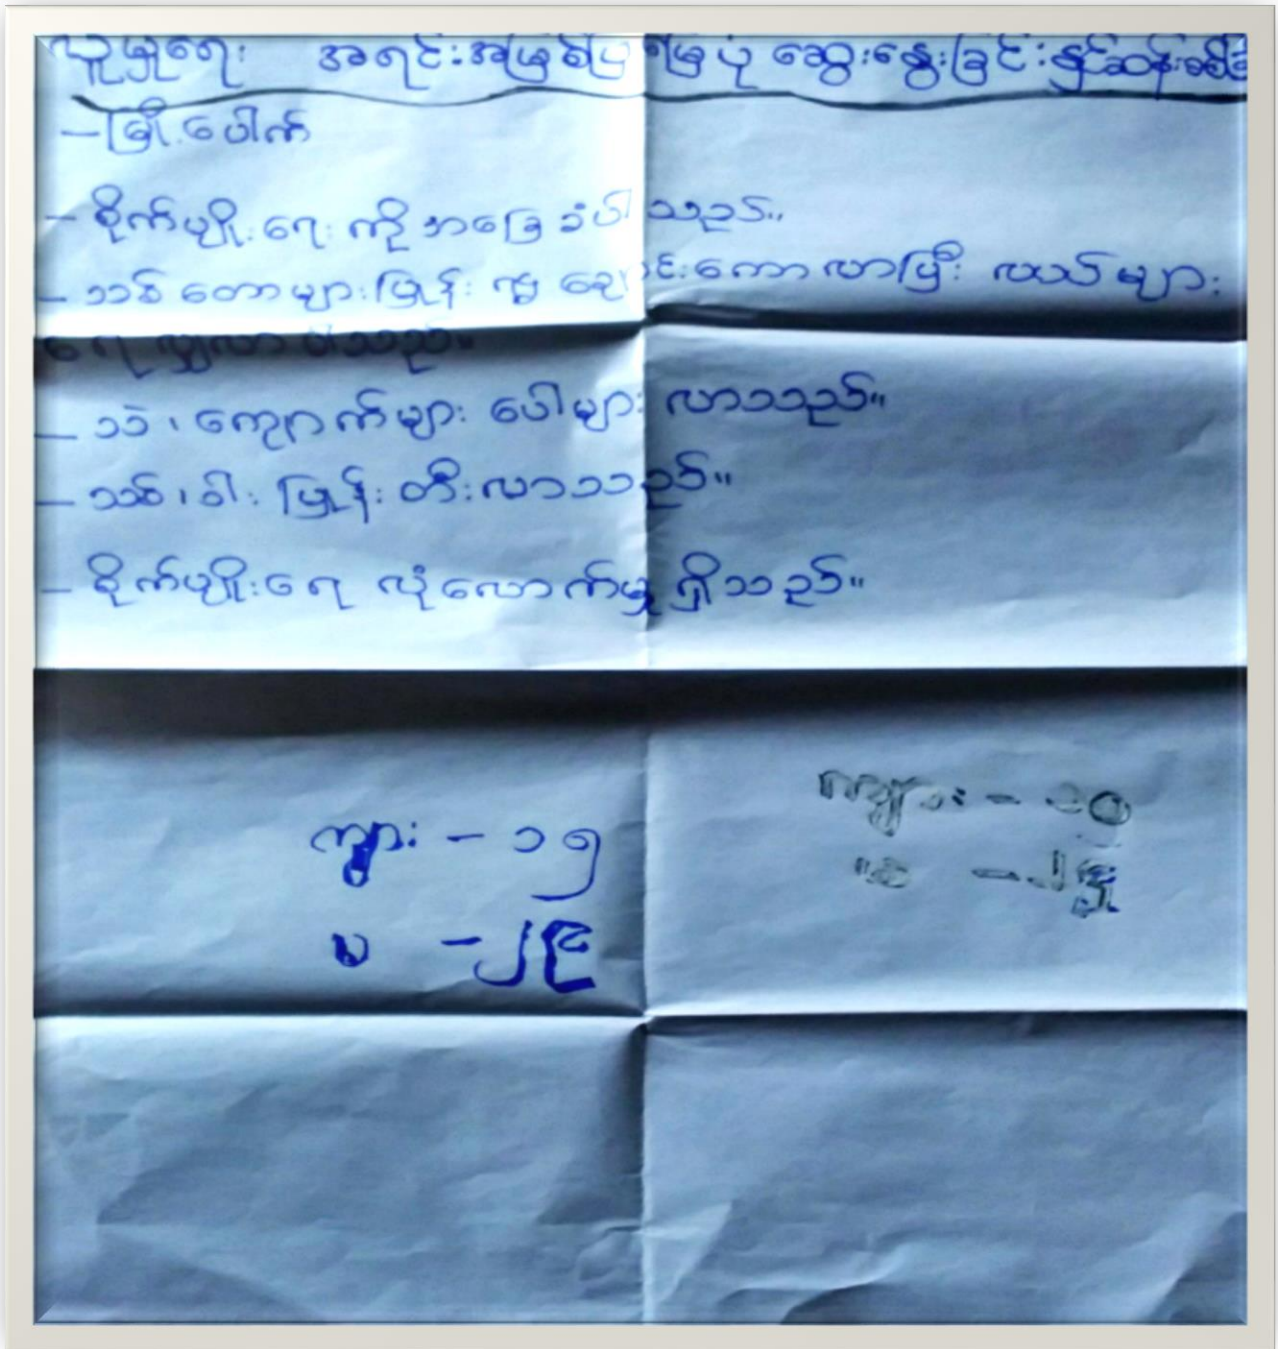 လူမှုရေး အရင်းအမြစ်ပြ မြေပုံ ဆွေးနွေးခြင်းနှင့်ဆန်းစစ်
– မြို့ပေါက်
– စိုက်ပျိုးရေးကို အခြေခံပါသည်။
– သစ်တောများပြုန်း ကာလာပြီး လယ်များ
ရေ လျှံလာပါသည်။
– သဲ၊ ကျောက်များ ပေါများလာသည်။
– သစ်၊ဝါး ပြုန်းတီးလာသည်။
– စိုက်ပျိုးရေ လုံလောက်မှု ရှိသည်။
ကျား – ၁၅
မ – ၂၉